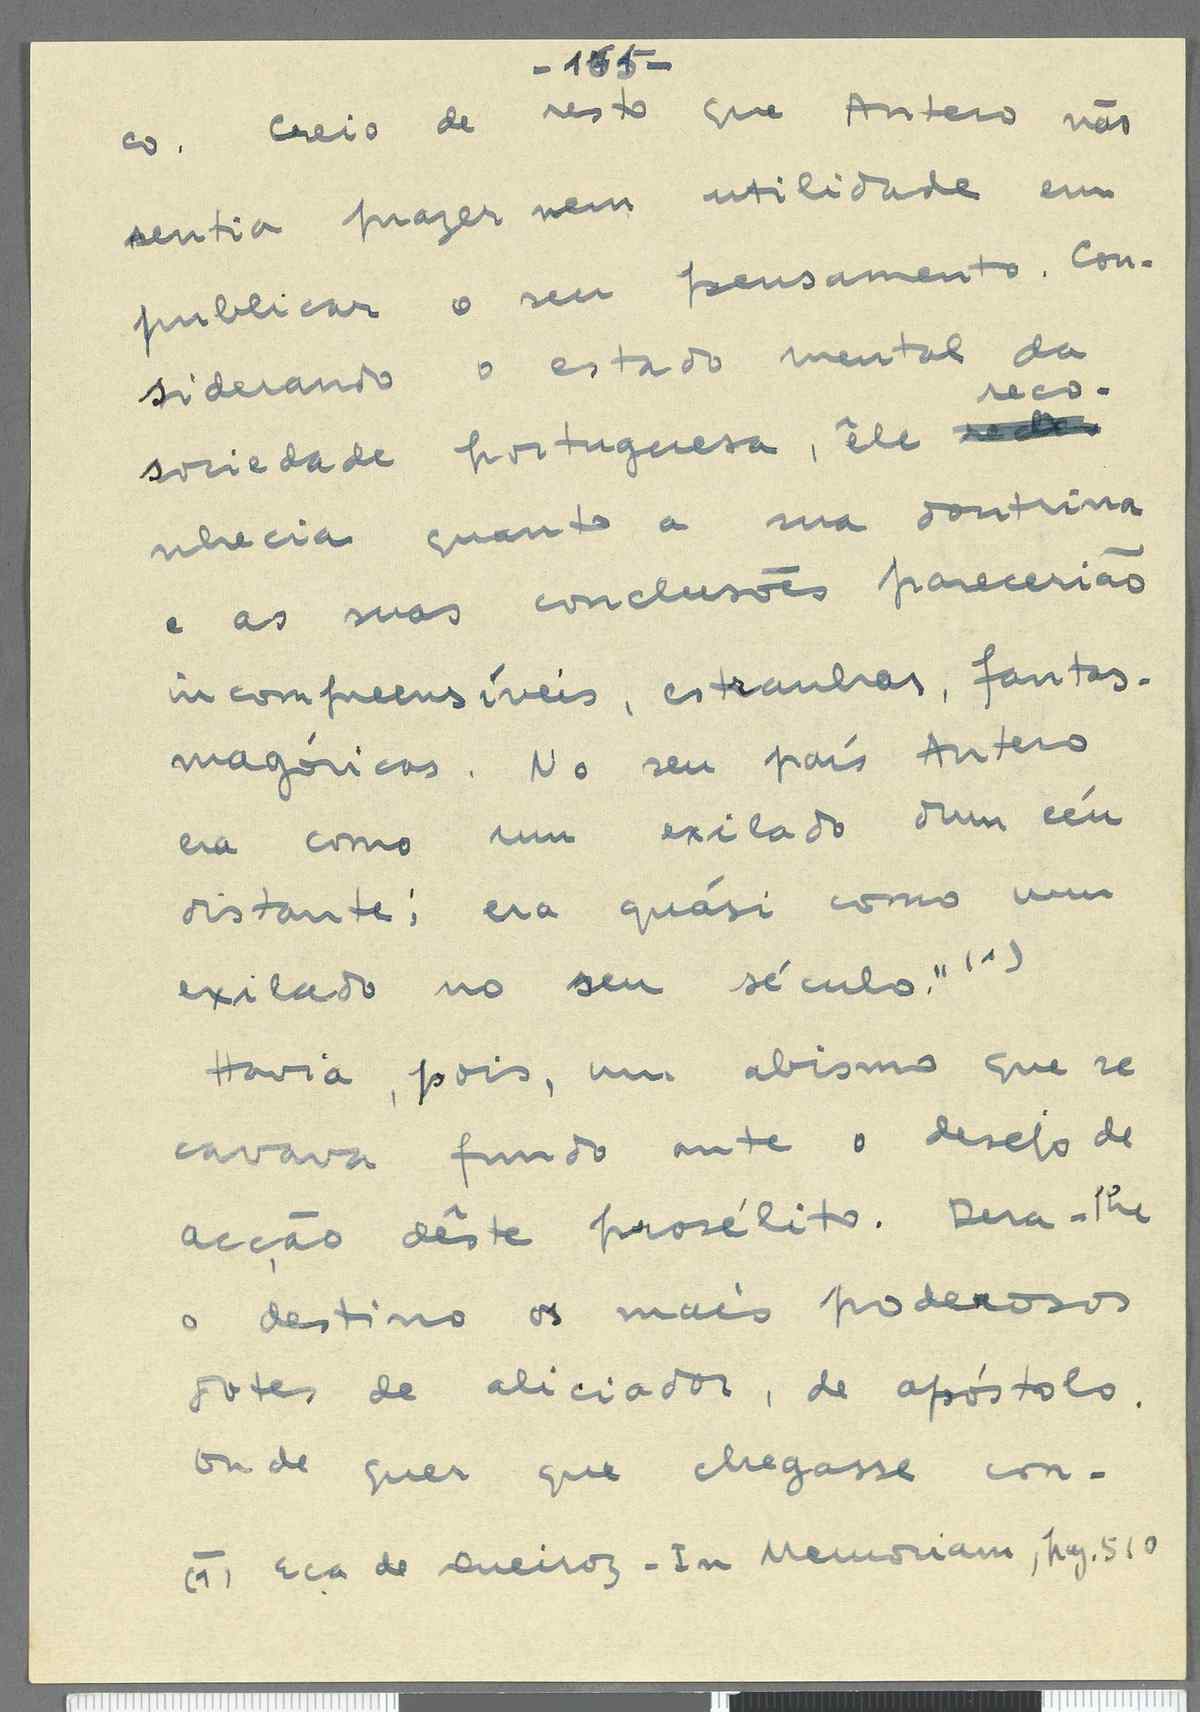 co. Creio de resto que Antero não
sentia prazer nem utilidade em
publicar o seu pensamento. Con-
siderando o estado mental da
sociedade portuguesa, êle reco-
nhecia quanto a sua doutrina
e as suas conclusões parecerião
incompreensíveis, estranhas, fantas-
magóricas. No seu país Antero
era como um exilado dum céu
distante; era quási como um
exilado no seu século." (1)
Havia, pois, um abismo que se
cavava fundo ante o desejo de
acção dêste prosélito. Dera-lhe
o destino os mais poderosos
dotes de aliciador, de apóstolo.
Onde quer que chegasse con-
(1) Eça de Queiroz - In Memoriam, pag. 510